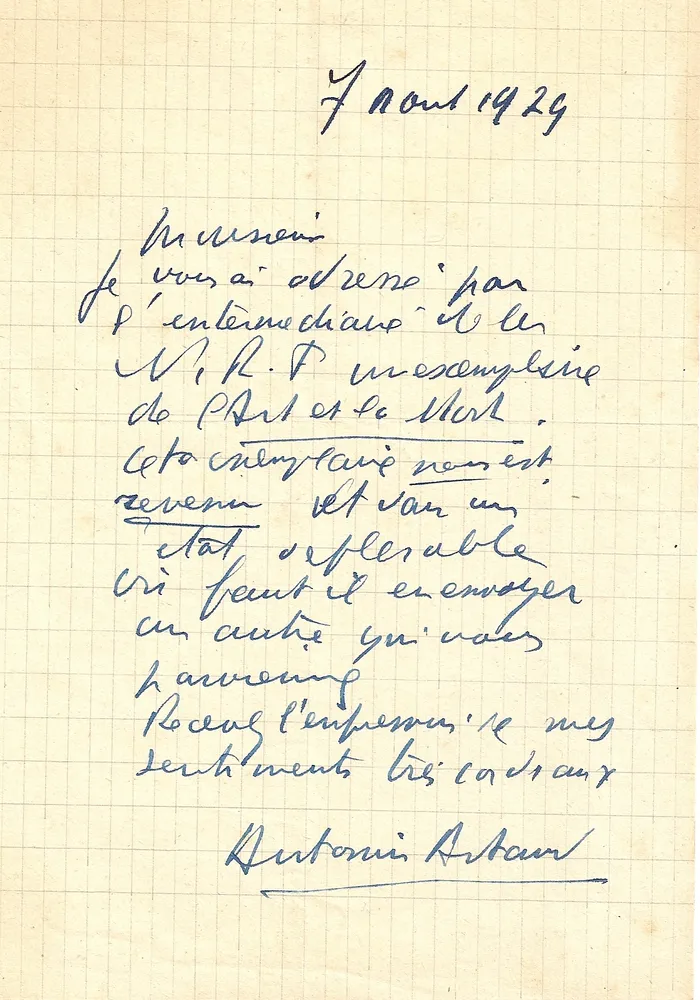 7 Aout 1929
Monsieur
Je vous ai adressé par
l'intermediaire de la
N. R. F un exemplaire
de l'Art et la Mort.
Cet exemplaire nous est
revenu et dans un
état deplorable
Où faut il en envoyer
un autre qui vous
parvienne
Recevez l'expression de mes
sentiments très cordiaux
Antonin Artaud